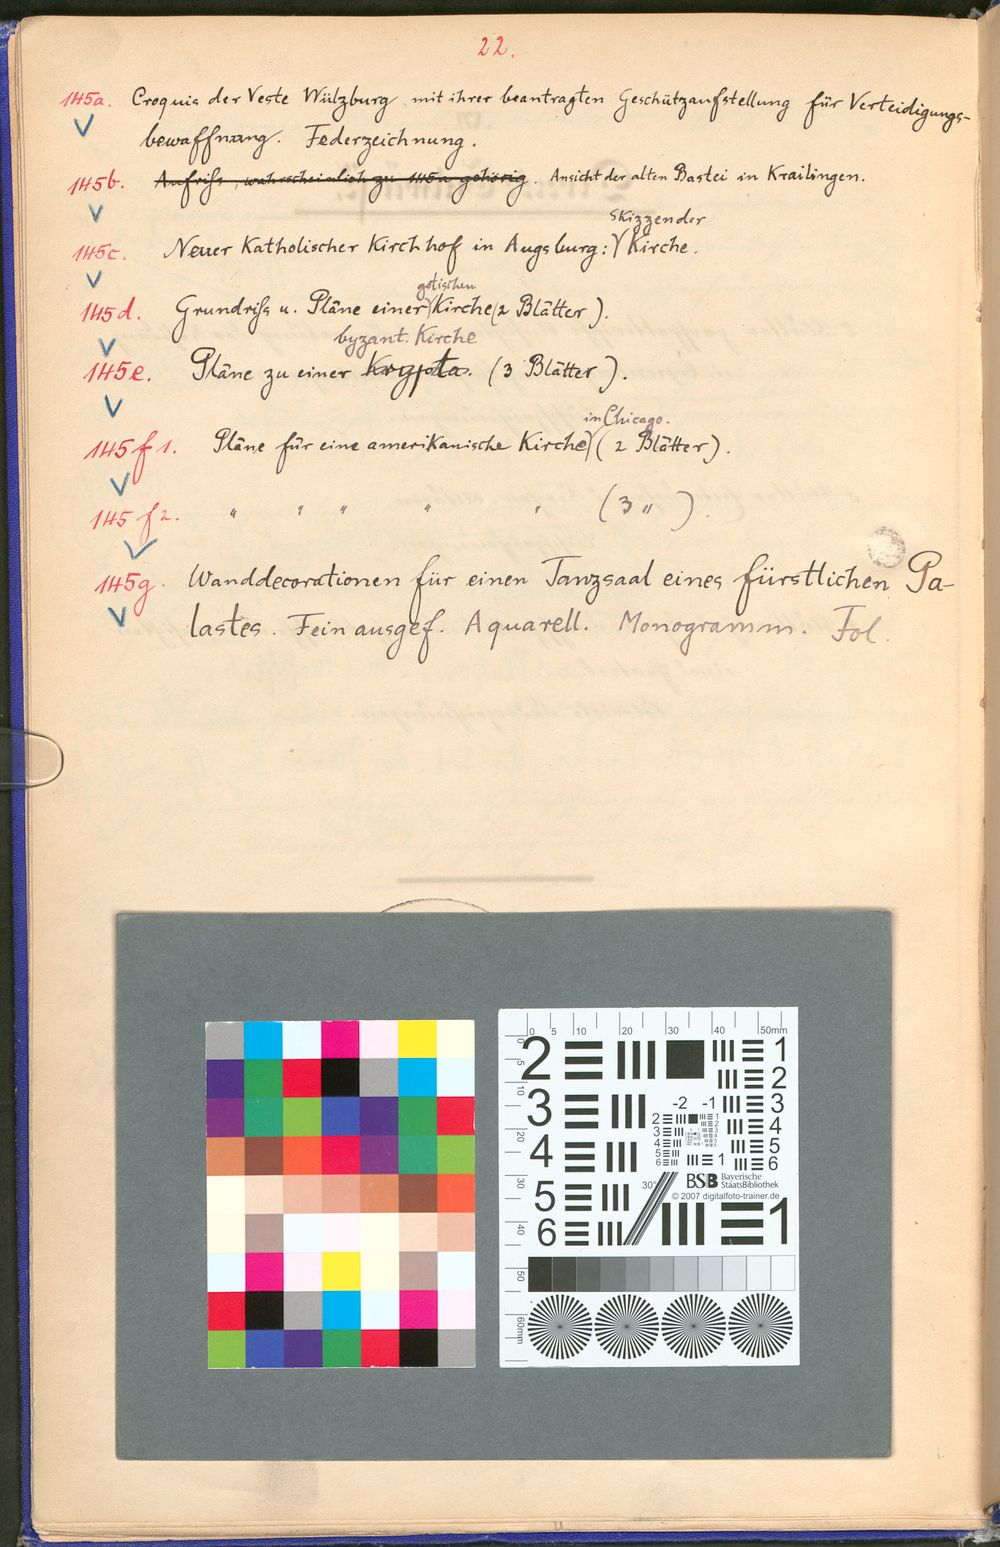 22.
145a. Croquis der Veste Wülzburg mit ihrer beantragten Geschützaufstellung für Verteidigungs-
bewaffnung. Federzeichnung.
145b. Aufriß, wahrscheinlich zu 145a gehörig. Ansicht der alten Bastei in Krailingen.
Skizzen der
145c. Neuer Katholischer Kirchhof in Augsburg: Kirche.
gotischen
145d. Grundriß u. Pläne einer Kirche (2 Blätter).
byzant. Kirche
145e. Pläne zu einer Krypta. (3 Blätter).
in Chicago.
145f1. Pläne für eine amerikanische Kirche (2 Blätter).
145f2. " " " " " (3 " ).
145g. Wanddecorationen für einen Tanzsaal eines fürstlichen Pa-
lastes. Fein ausgef. Aquarell. Monogramm. Fol.
0 5 10 20 30 40 50mm
2 1
2
3 -2 -1 3
4 4
5
6
5 30°
BSB Bayerische
StaatsBibliothek
© 2007 digitalfoto-trainer.de
6 1
0 5 10 20 30 40 50 60mm